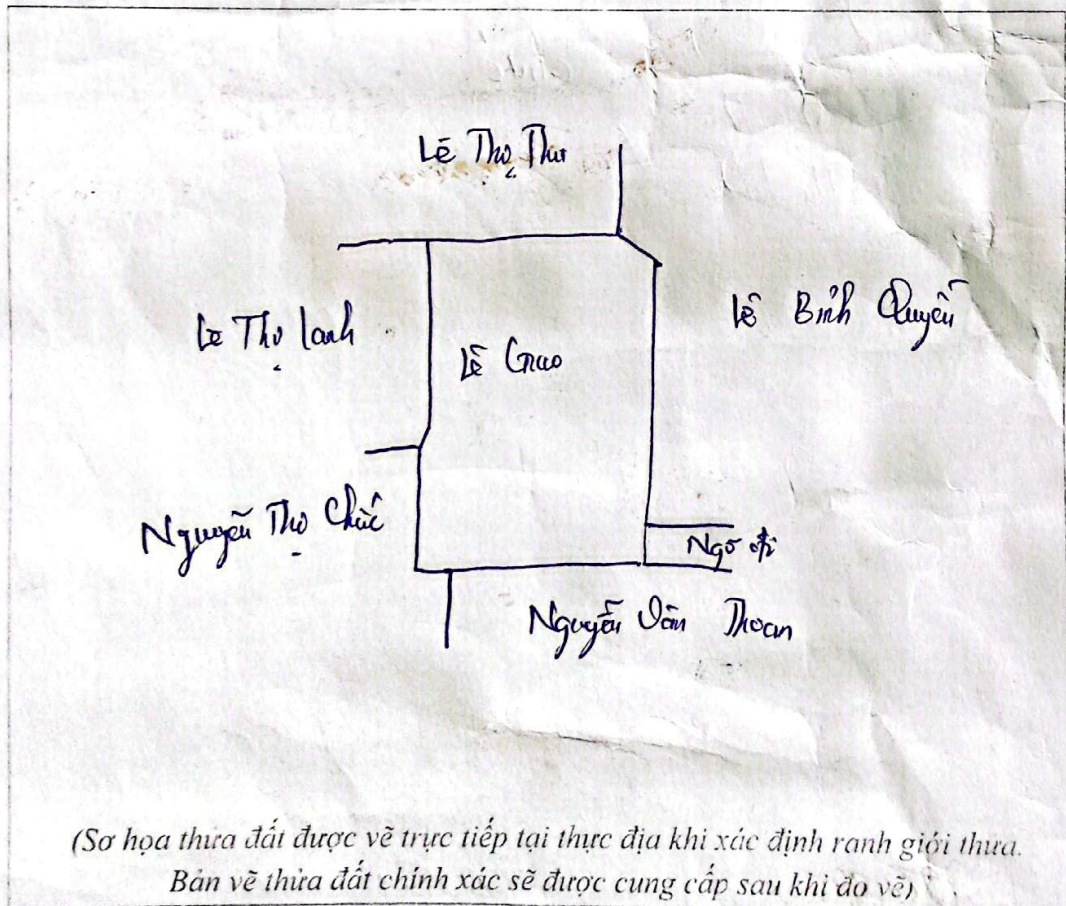 Lê Thọ Thư
Lê Thọ Lanh
Lê Giao
Lê Bỉnh Quyền
Nguyễn Thọ Chức
Ngõ đi
Nguyễn Văn Thoan
(Sơ họa thửa đất được vẽ trực tiếp tại thực địa khi xác định ranh giới thửa.
Bản vẽ thửa đất chính xác sẽ được cung cấp sau khi đo vẽ)